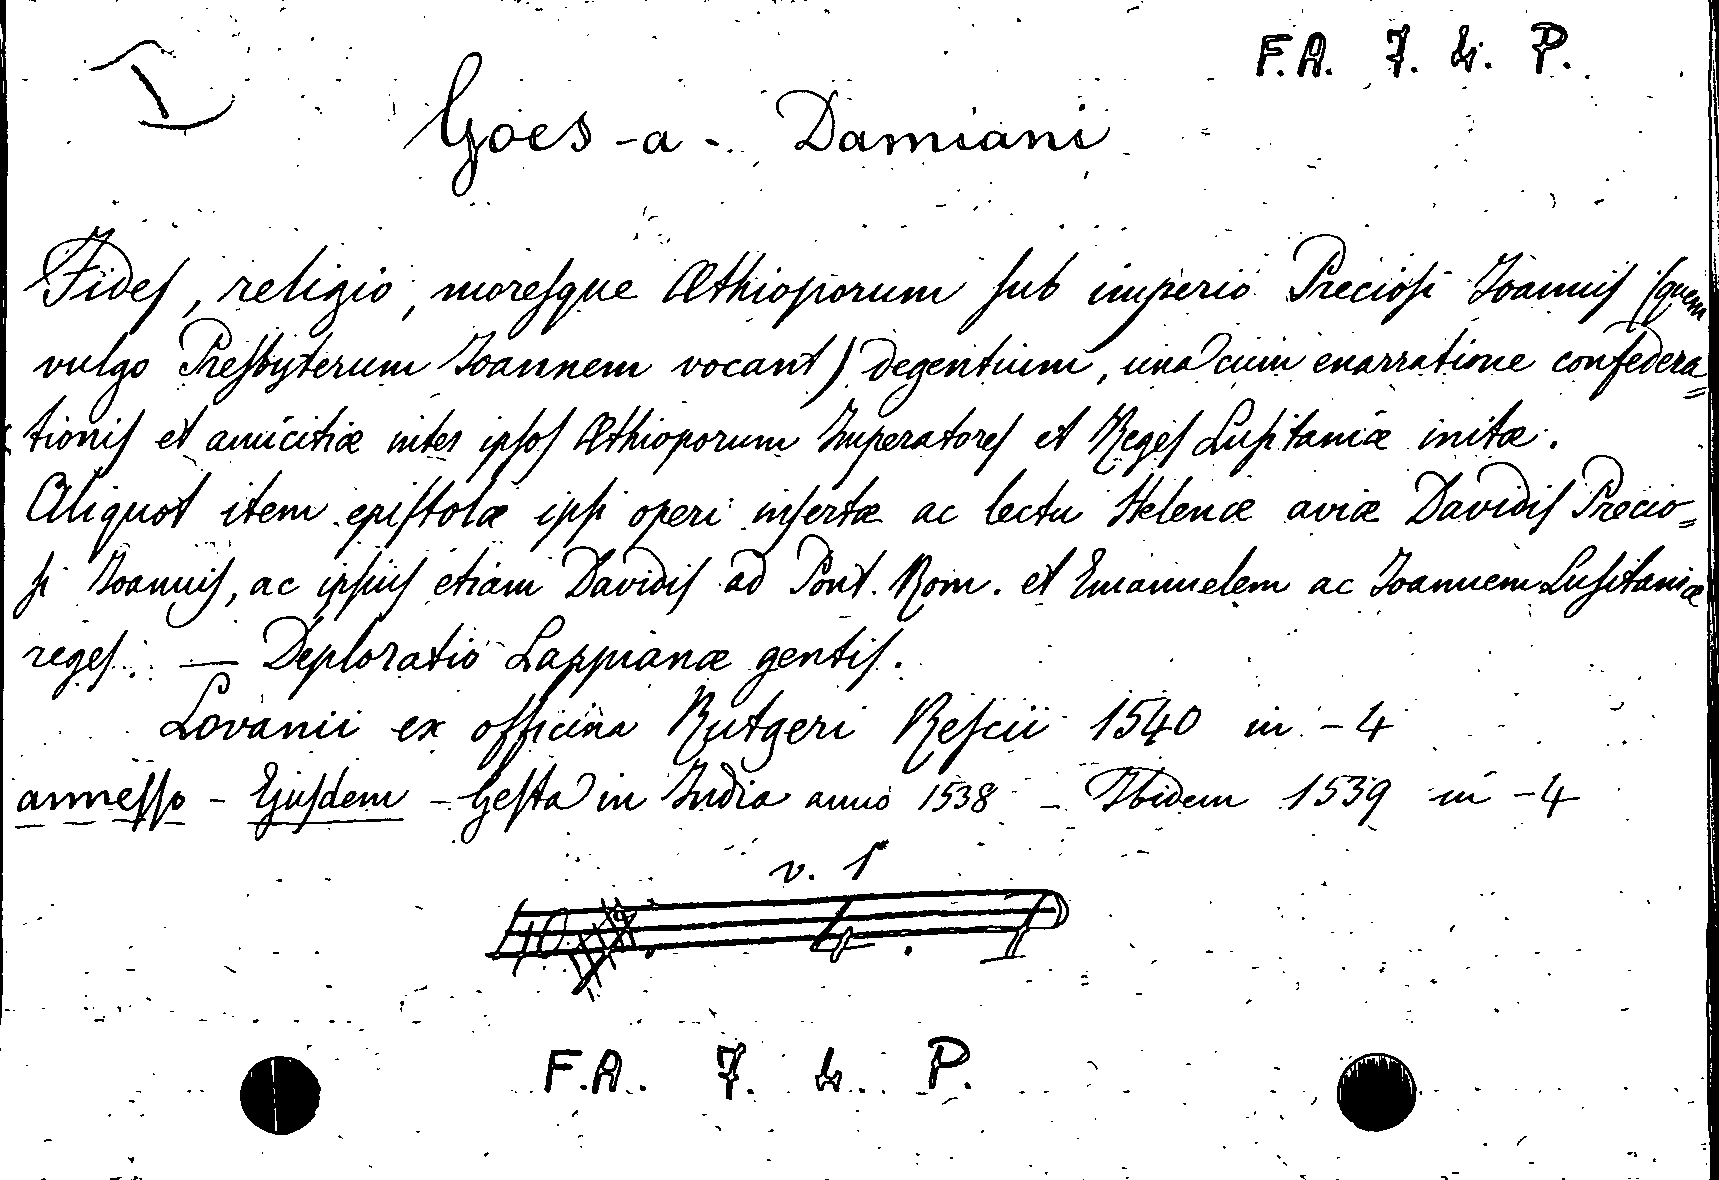 I
F.A. 7. 4. P.
Goes -a-. Damiani
Fides, religio, moresque Æthioporum sub imperio Preciosi Joannis (quem
vulgo Presbyterum Joannem vocant) degentium, una cum enarratione confedera=
tionis et amicitiæ inter ipsos Æthioporum Imperatores et Reges Lusitaniæ initæ.
Aliquot item epistolæ ipsi operi insertæ ac lectu Helenæ aviæ Davidis Precio=
si Joannis, ac ipsius etiam Davidis ad Pont. Rom. et Emanuelem ac Joannem Lusitaniæ
reges. — Deploratio Lappianæ gentis.
Lovanii ex officina Rutgeri Rescii 1540 in -4
annesso - Ejusdem - Gesta in India anno 1538 - Ibidem 1539 in -4
v. 1
F.A. 7. 4. P.